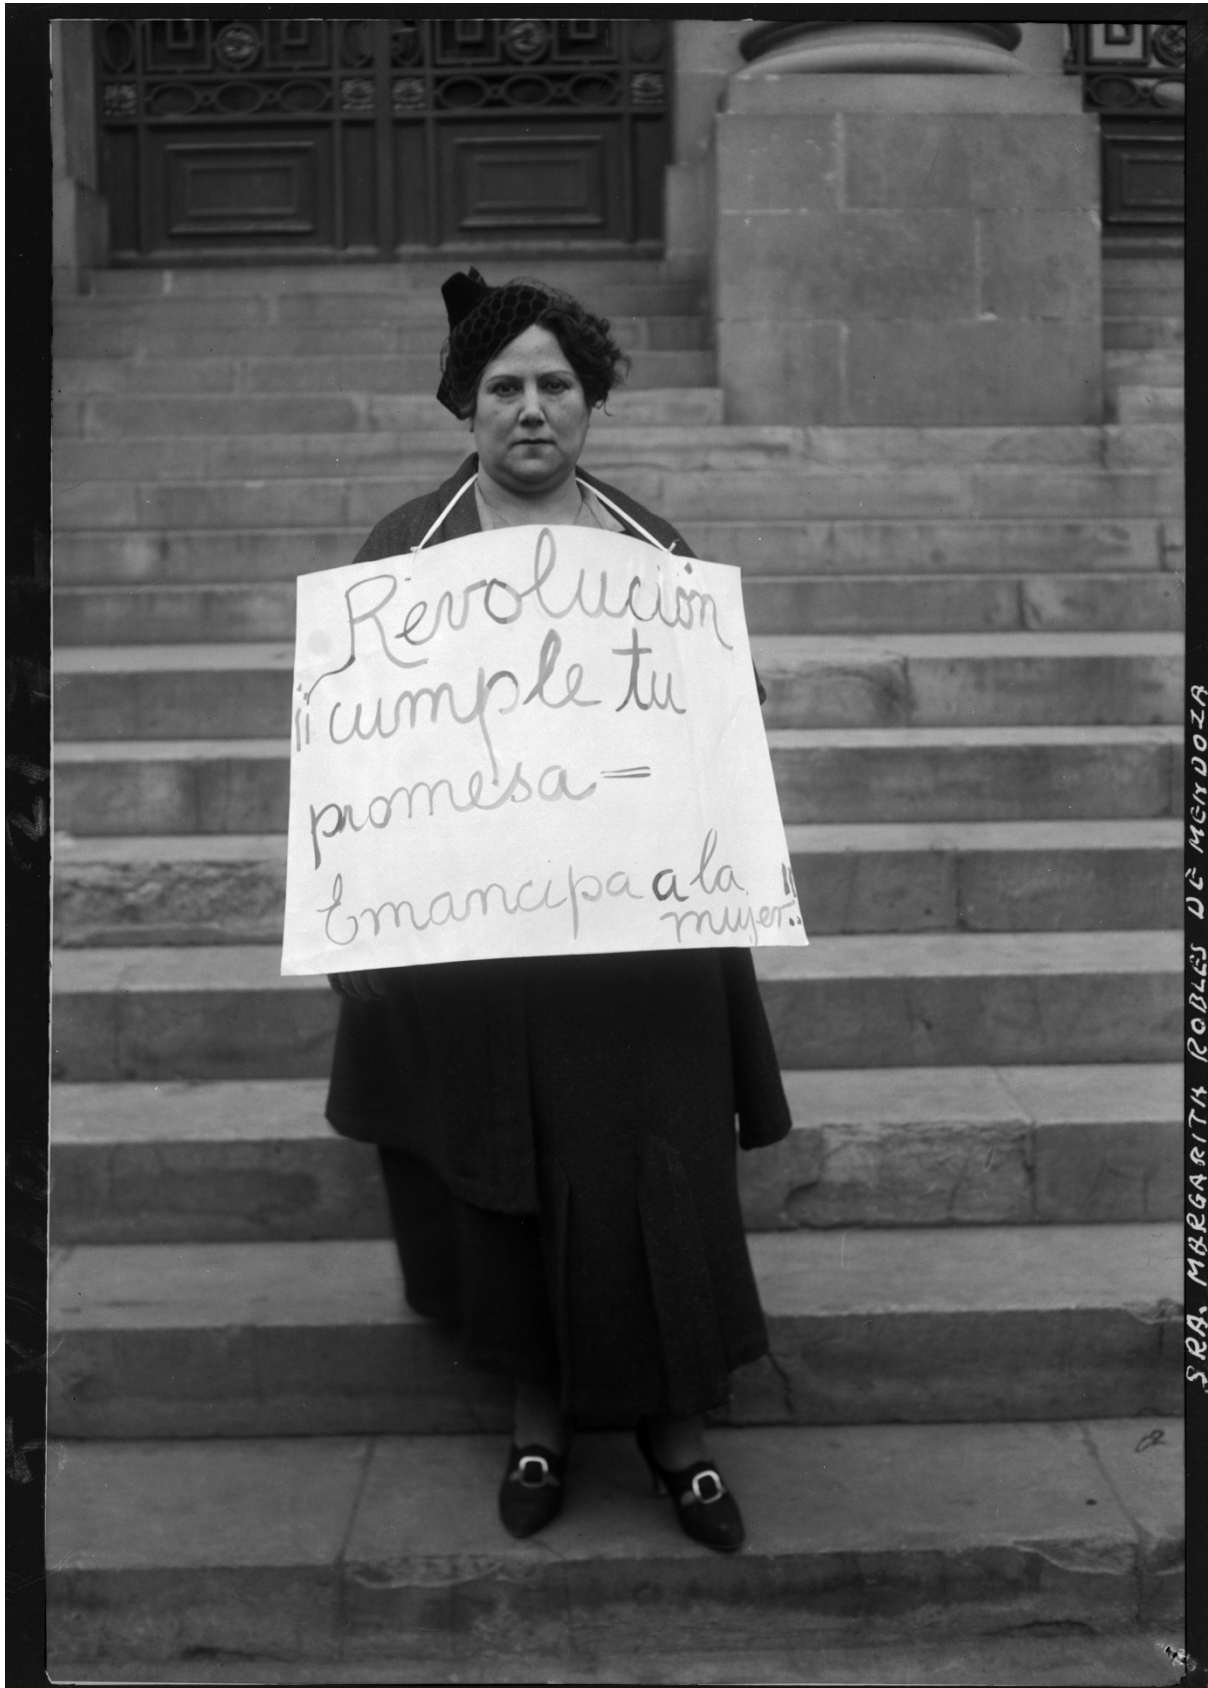 Revolución
¡¡cumple tu
promesa=
Emancipa a la
mujer!!
SRA. MARGARITA ROBLES DE MENDOZA